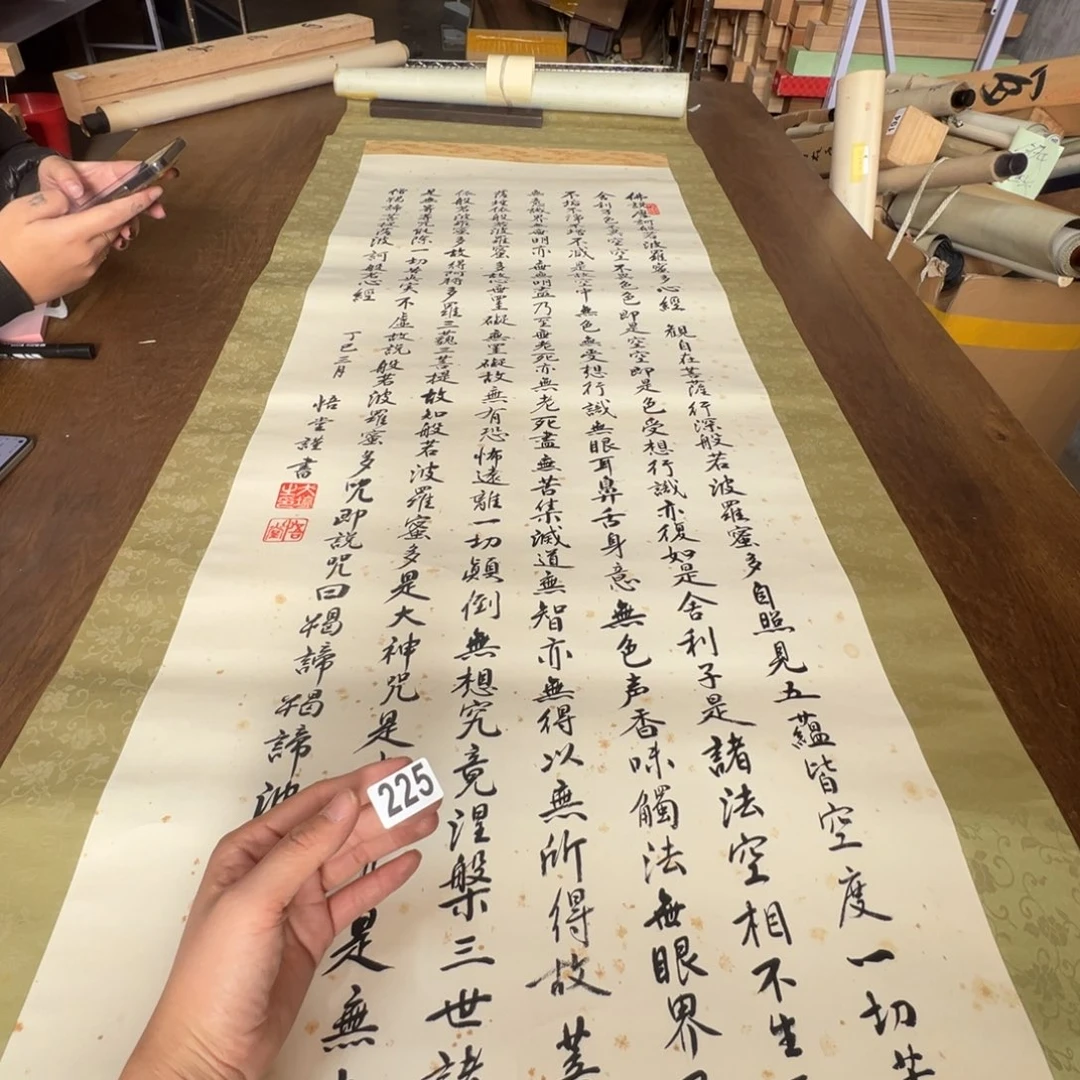 佛説摩訶般若波羅蜜多心經 觀自在菩薩行深般若波羅蜜多自照見五蘊皆空度一切苦
舍利子色不異空空不異色色即是空空即是色受想行識亦復如是舍利子是諸法空相不生
不垢不淨不增不減是故空中無色無受想行識無眼耳鼻舌身意無色声香味觸法無眼界
無意識界無無明亦無無明盡乃至無老死亦無老死盡無苦集滅道無智亦無得以無所得故菩
薩埵依般若波羅蜜多故心無罣礙無罣礙故無有恐怖遠離一切顛倒無想究竟涅槃三世諸
依般若波羅蜜多故得阿耨多羅三藐三菩提故知般若波羅蜜多是大神咒是是無
是無等等咒能除一切苦真实不虛故説般若波羅蜜多咒即説咒曰羯諦羯諦波
僧羯諦菩提薩婆訶般若心經
丁巳三月 悟堂謹書
悟堂
225